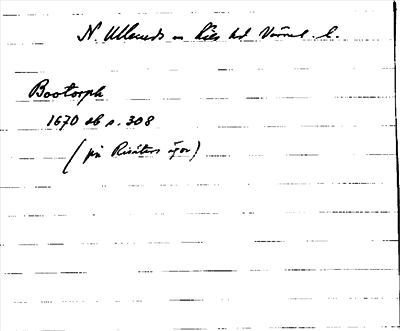 N. Ullerud sn Kils hd Värml. l.
Bootorph
1670 sb s. 308
(på Risäters ägor)